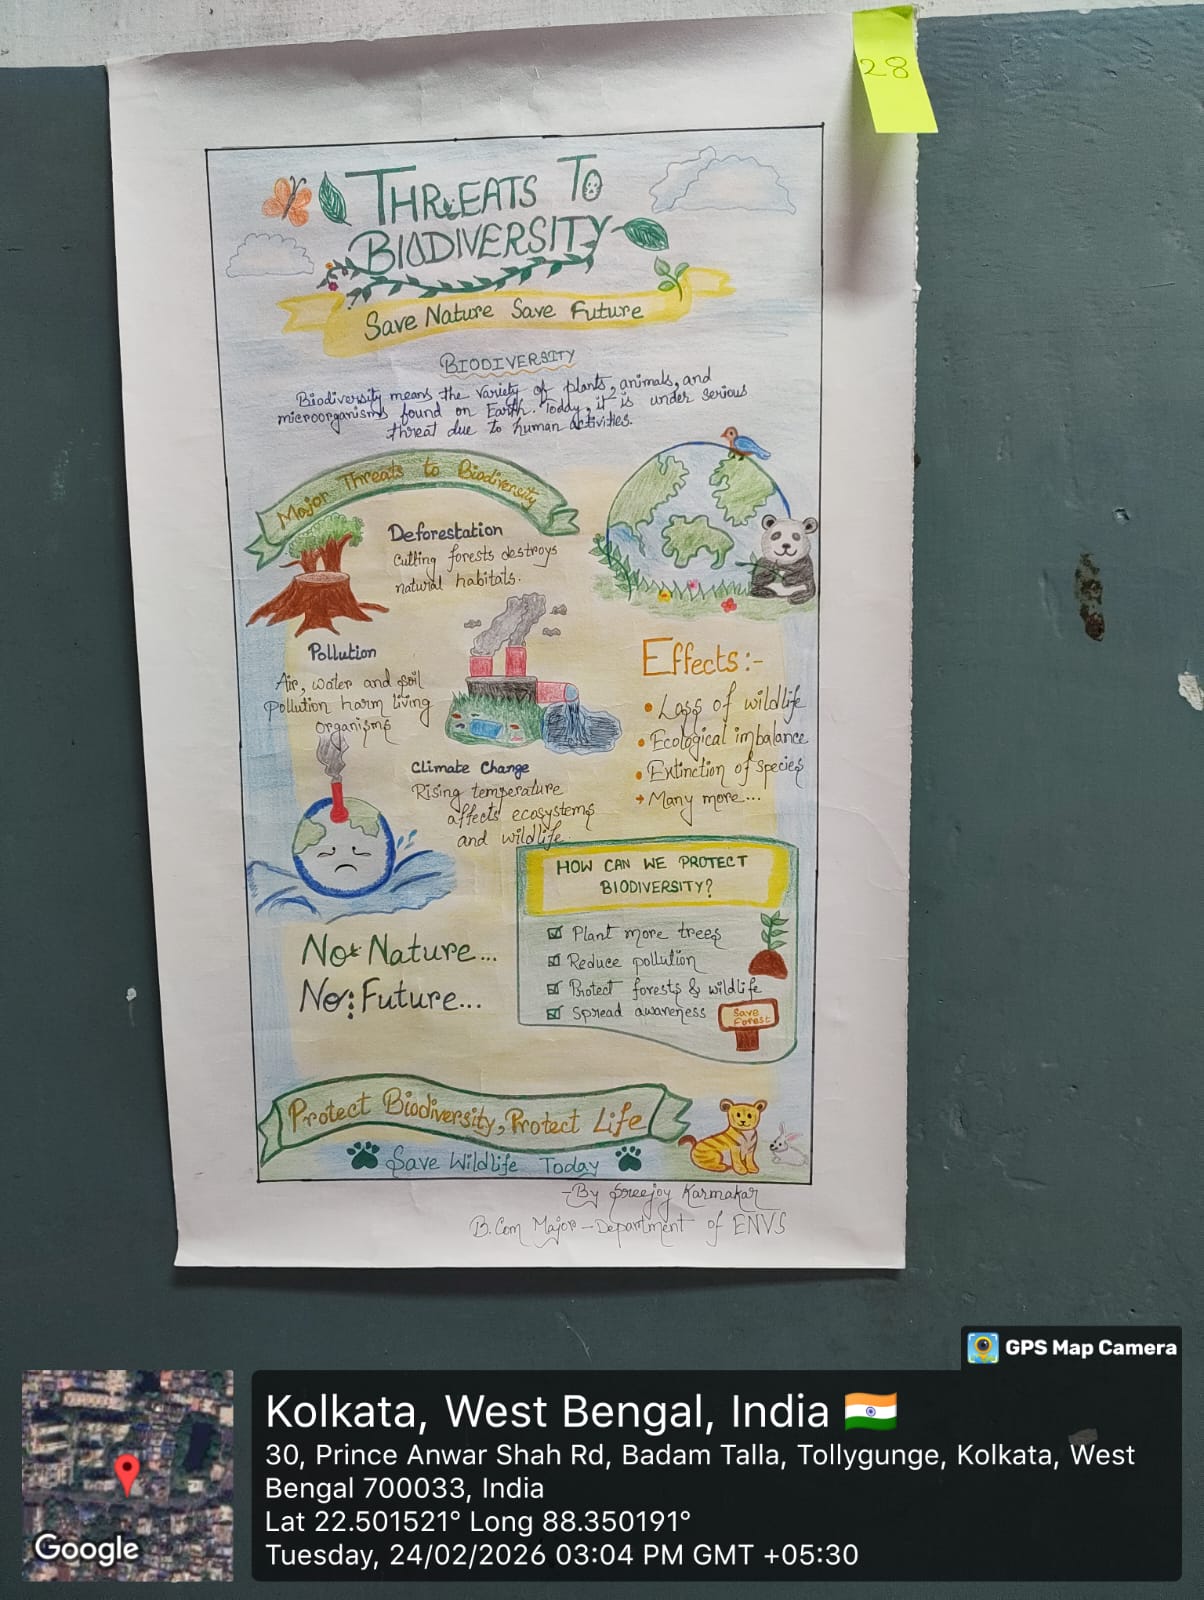 28
THREATS TO
BIODIVERSITY
Save Nature Save Future
BIODIVERSITY
Biodiversity means the variety of plants, animals, and
microorganisms found on Earth. Today, it is under serious
threat due to human activities.
Major Threats to Biodiversity
Deforestation
Cutting forests destroys
natural habitats.
Pollution
Air, water and soil
Pollution harm living
organisms
Climate Change
Rising temperature
affects ecosystems
and wildlife.
Effects:-
Loss of wildlife
Ecological imbalance
Extinction of species
Many more...
HOW CAN WE PROTECT
BIODIVERSITY?
Plant more trees
Reduce pollution
Protect forests & wildlife
Spread awareness
Save
Forest
No Nature...
No Future...
Protect Biodiversity, Protect Life
Save Wildlife Today
-By Sreejoy Karmakar
B.Com Major - Department of ENVS
GPS Map Camera
Kolkata, West Bengal, India
30, Prince Anwar Shah Rd, Badam Talla, Tollygunge, Kolkata, West
Bengal 700033, India
Lat 22.501521° Long 88.350191°
Tuesday, 24/02/2026 03:04 PM GMT +05:30
Google